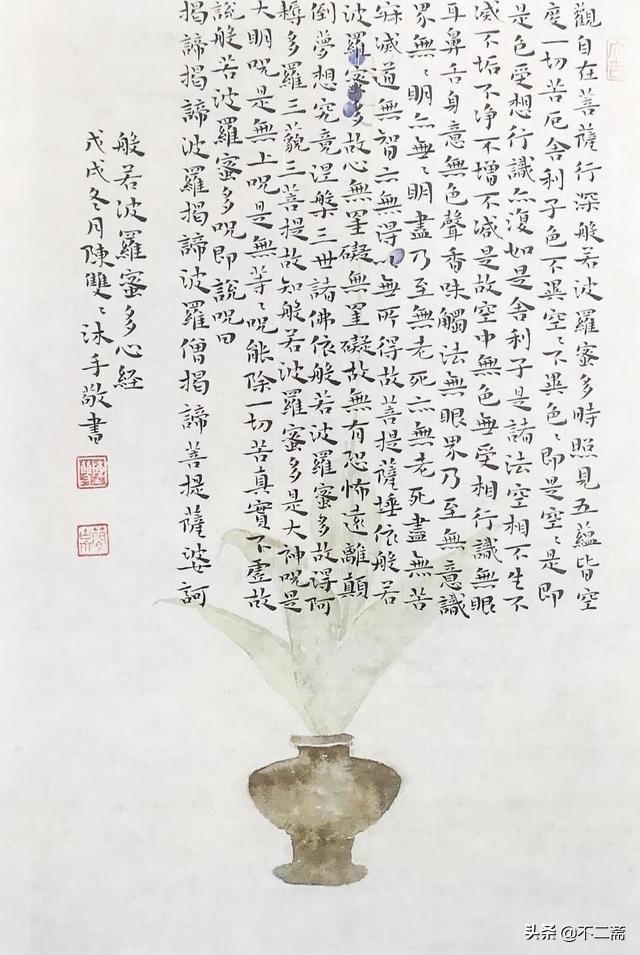 觀自在菩薩行深般若波羅蜜多時照見五蘊皆空
度一切苦厄舍利子色不異空〻不異色〻即是空〻是即
是色受想行識亦復如是舍利子是諸法空相不生不
滅不垢不净不增不减是故空中無色無受相行識無眼
耳鼻舌身意無色聲香味觸法無眼界乃至無意識
界無〻明亦無〻明盡乃至無老死亦無老死盡無苦
滅道無智亦無得以無所得故菩提薩埵依般若
波羅蜜多故心無罣礙無罣礙故無有恐怖遠離顛
倒夢想究竟涅槃三世諸佛依般若波羅蜜多故得阿
耨多羅三藐三菩提故知般若波羅蜜多是大神呪是
大明呪是無上呪是無等〻呪能除一切苦真實不虛故
說般若波羅蜜多呪即說呪曰
揭諦揭諦波羅揭諦波羅僧揭諦菩提薩婆訶
般若波羅蜜多心経
戊戌冬月陳雙〻沐手敬書
大吉
头条 @不二斋